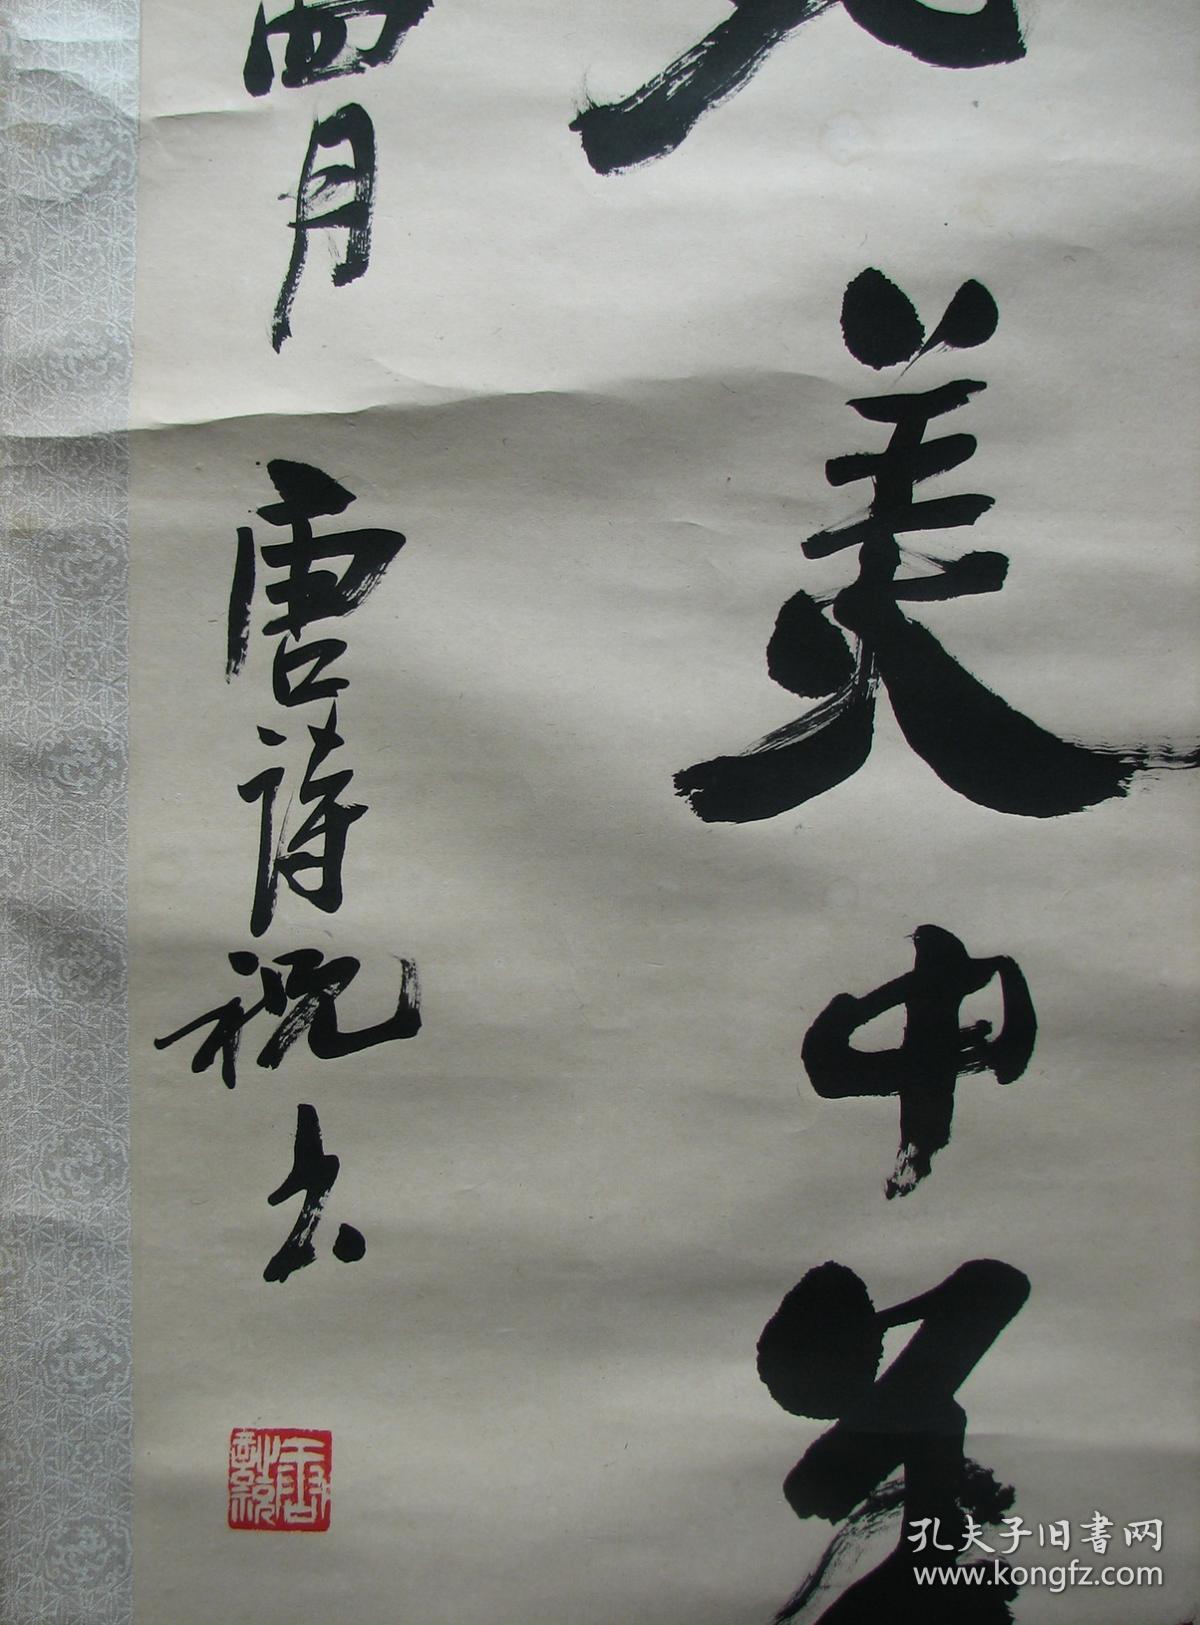 美中
四月唐诗祝书
孔夫子旧書网
www.kongfz.com